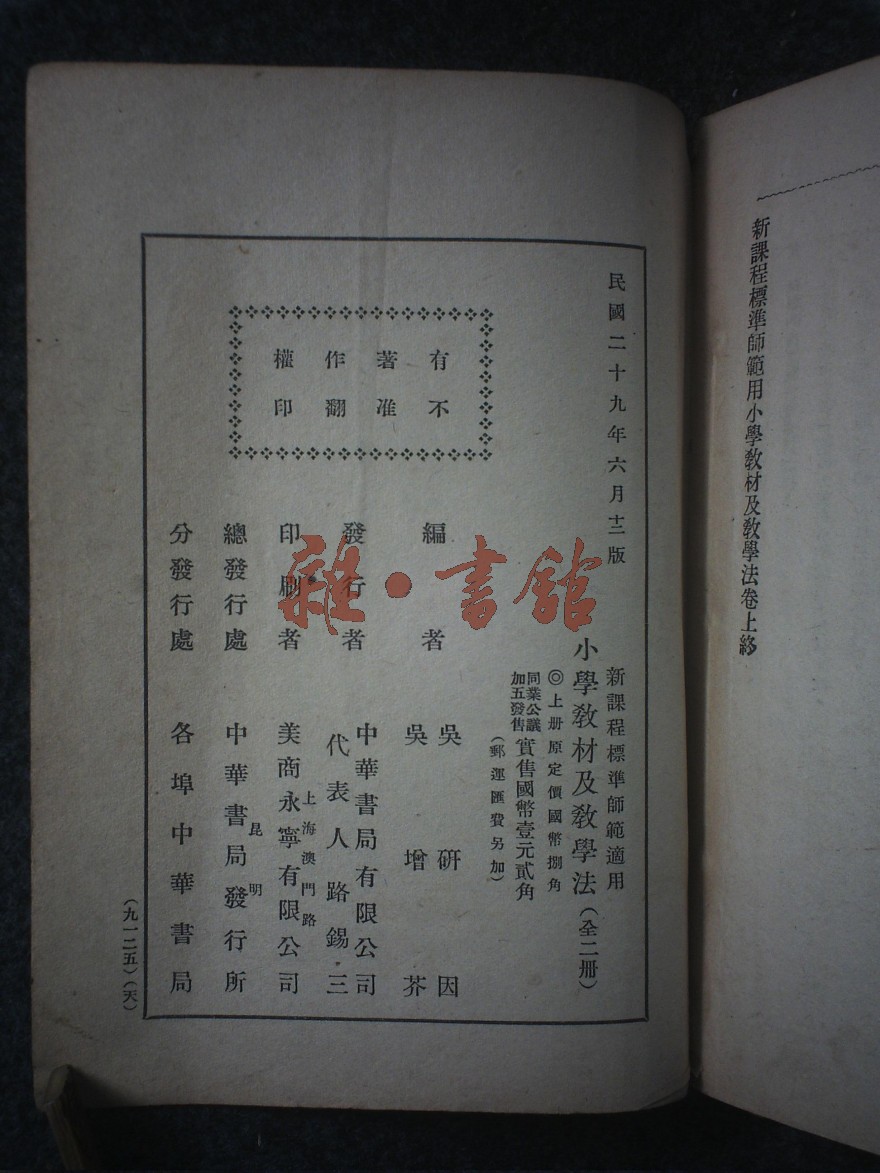 新課程標準師範用小學教材及教學法卷上終
民國二十九年六月十二版
有著作權
不准翻印
新課程標準師範適用
小學教材及教學法(全二冊)
◎上册原定價國幣捌角
同業公議
加五發售
實售國幣壹元貳角
(郵運匯費另加)
編者
吳研因
吳增芥
發行者
中華書局有限公司
代表人路錫三
印刷者
上海澳門路
美商永寧有限公司
總發行處
昆明
中華書局發行所
分發行處
各埠中華書局
(九一二五)(天)
雜·書館